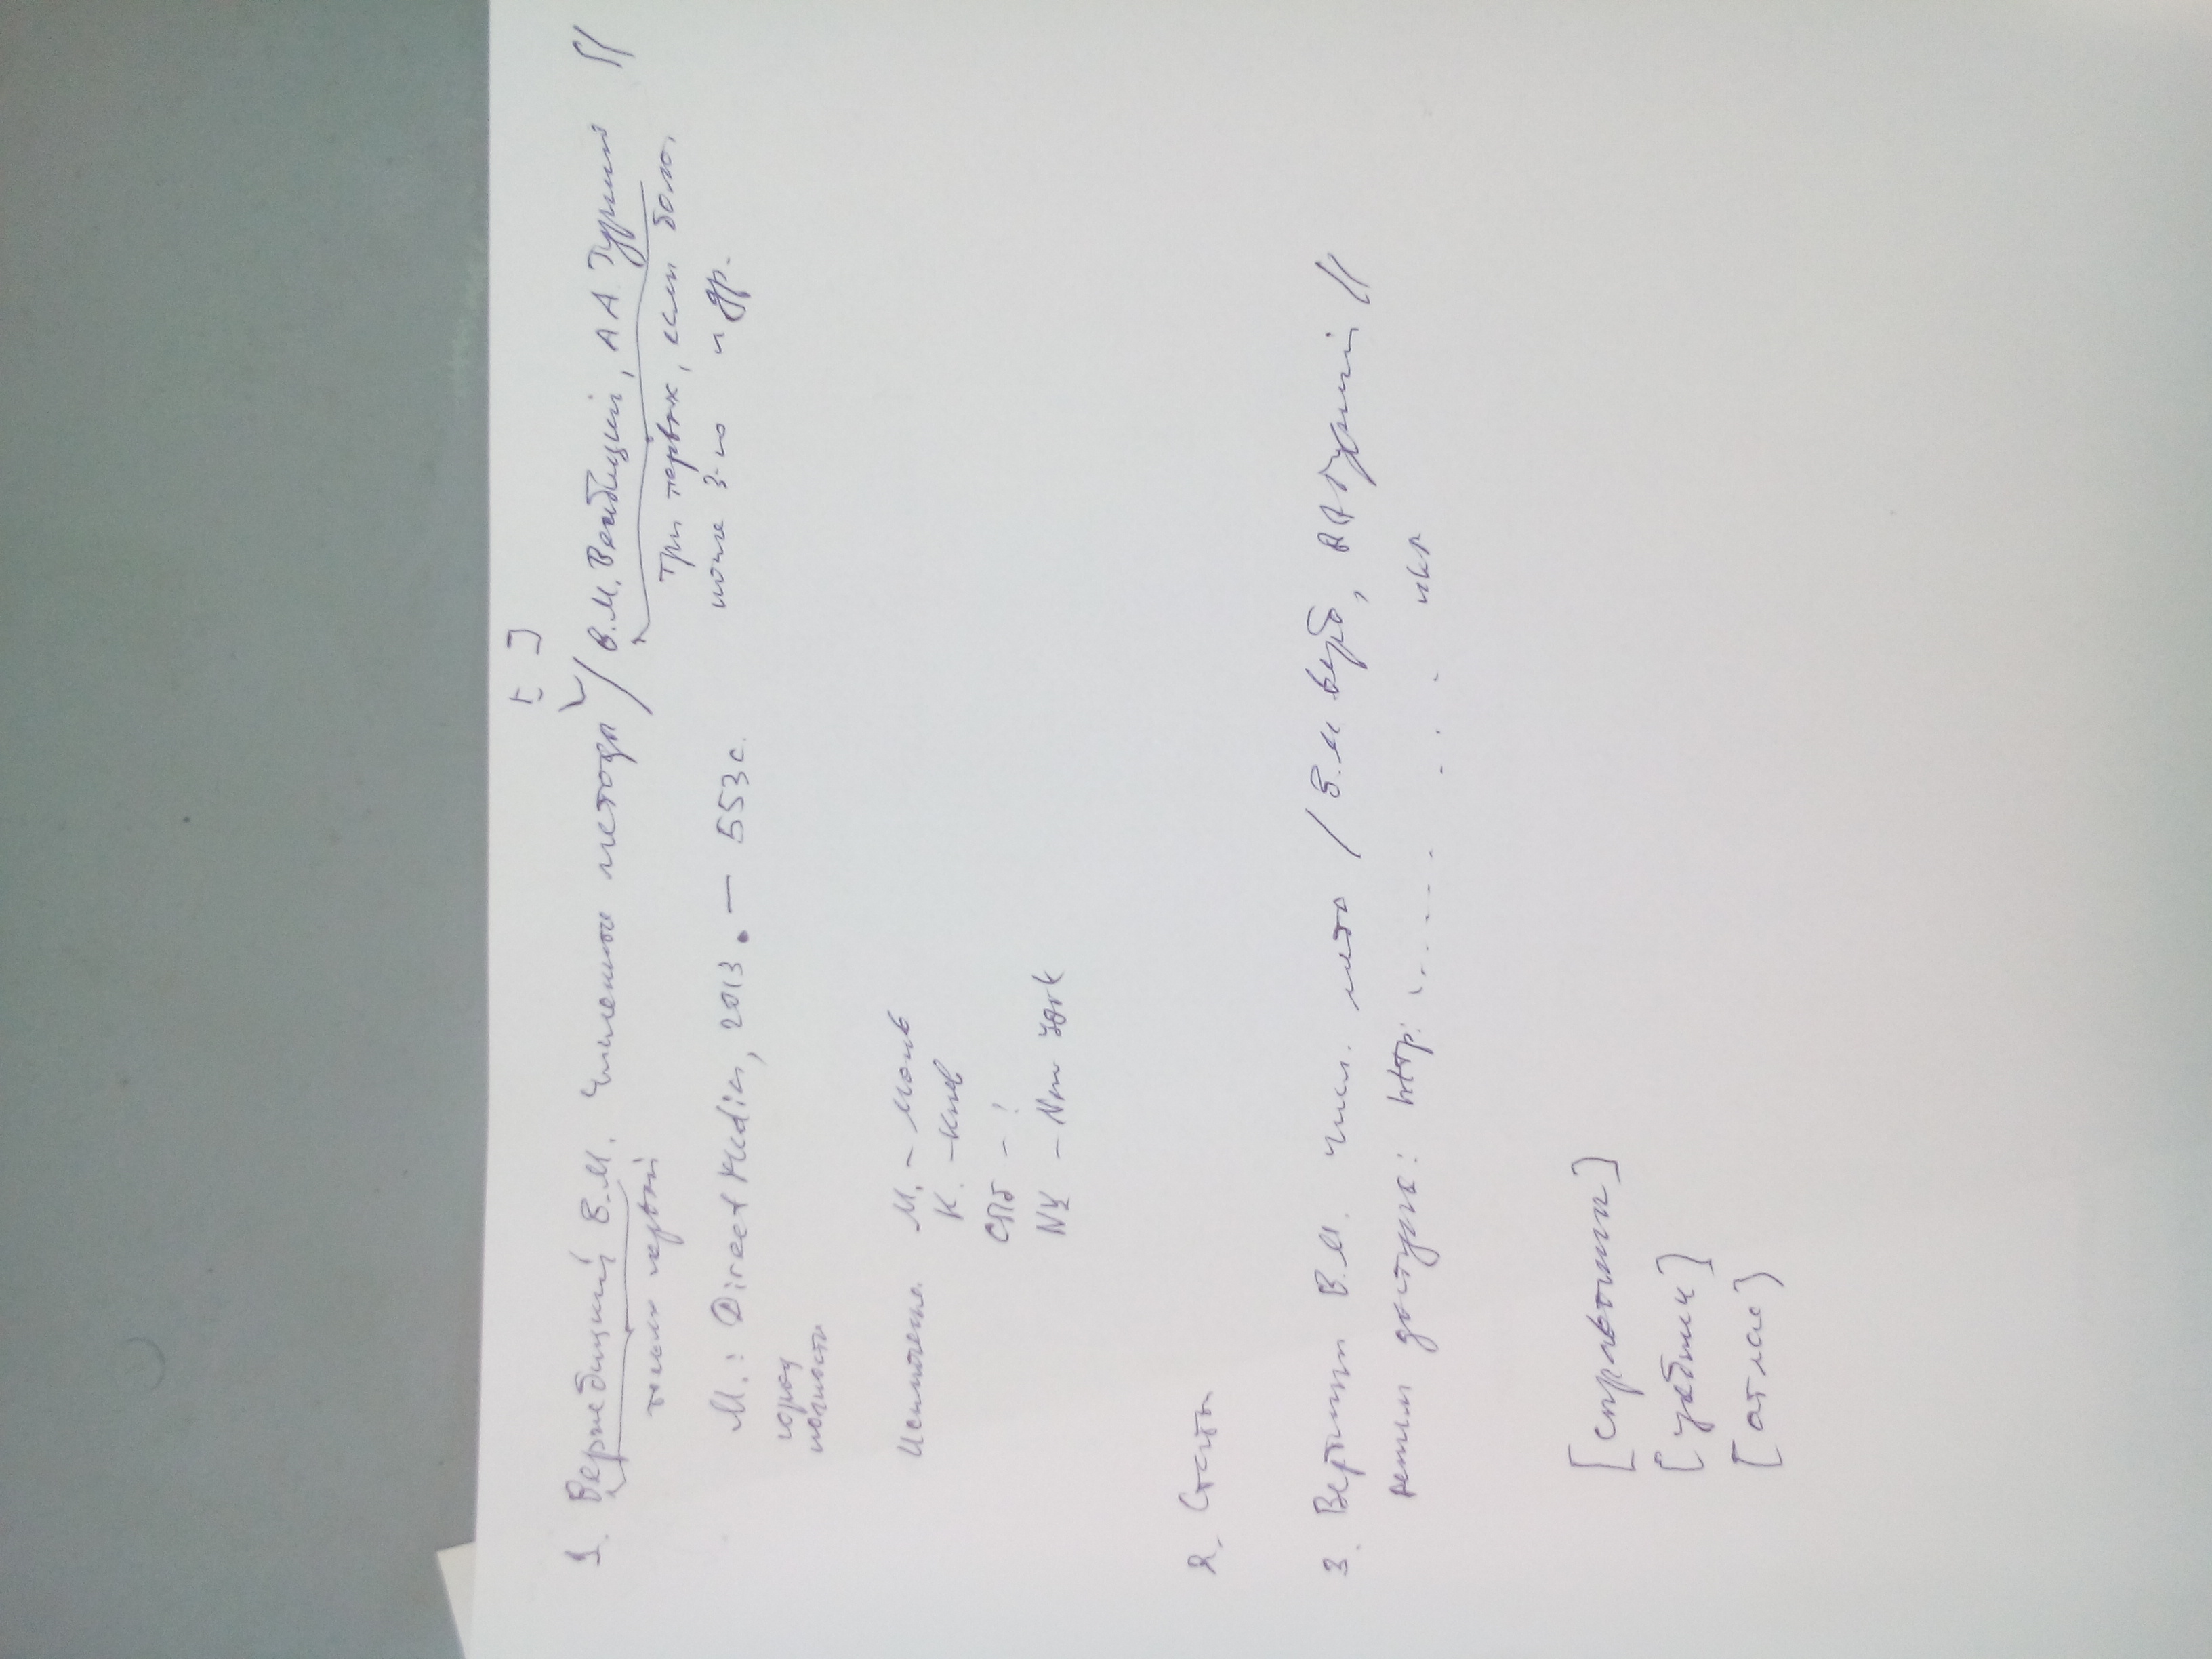 [ ]
1. Вержбицкий В.М. Численные методы / В.М. Вержбицкий, А А Гурский //
только первый
три первых, если боле,
после 3-го и др.
М.: Direct Media, 2013. — 553 с.
город
полность
М. –
К. – Киев
СПб – !
NY – New York
2. Статьи
3. В.М. числ. мето / В.М Верб, А А Гурский //
режим доступа: http: . . . . . . . . .
[справочник]
[учебник]
[атлас]